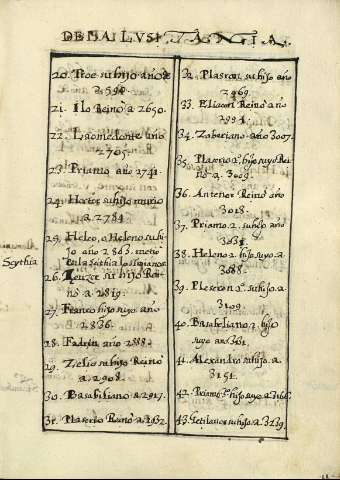 20. Troe su hijo año
2598.
21. Ilo Reinó a 2650.
22. Laomedonte año
2705.
23. Priamo año 2741.
24. Hector su hijo murio
a 2784
25. Heleo, o Heleno su hi
jo año 2803. metió
en la Scithia los Troianos
Scythia
26. su hijo Rei
nó a 2819.
27. Franco hijo suyo año
2836.
28. Fadrin año 2888.
29. Zelio su hijo Reinó
a 2908.
30. Basabiliano a 2917.
31. Plaserio Reinó a 2932.
32. Plasron su hijo año
2969.
33. Eliacor Reinó año
34. Zaberiano año 3007.
35. Plaserio 2º hijo suyo Rei
nó a 3009.
36. Antenor Reinó año
3018.
37. Priamo 2. su hijo a
38. Heleno 2. hijo suyo a
3088.
39. Plesron 2º su hijo a
3109.
40. Basabeliano 2. hijo
suyo
41. Alexandro su hijo a
3151.
42. Priamo 3º hijo suyo a
43. Getilanos su hijo a. 3239.